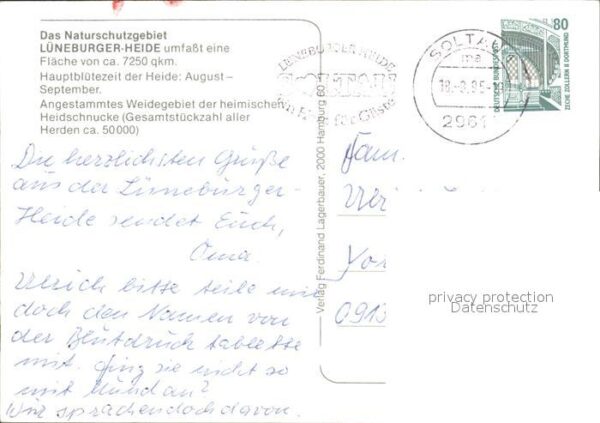 Das Naturschutzgebiet
LÜNEBURGER-HEIDE umfaßt eine
Fläche von ca. 7250 qkm.
Hauptblütezeit der Heide: August–
September.
Angestammtes Weidegebiet der heimischen
Heidschnucke (Gesamtstückzahl aller
Herden ca. 50000)
Die herzlichsten Grüße
aus der Lüneburger-
Heide sendet Euch,
Oma.
Ulrich bitte teile mir
doch den Namen von
der Blutdruck tablette
mit. fing sie nicht so
mit Mund an?
Wir sprachen doch davon.
Verlag Ferdinand Lagerbauer, 2000 Hamburg 60
LÜNEBURGER HEIDE
SOLTAU
SOLTAU
ma
2961
80
DEUTSCHE BUNDESPOST
ZECHE ZOLLERN II DORTMUND
Fam.
privacy protection
Datenschutz